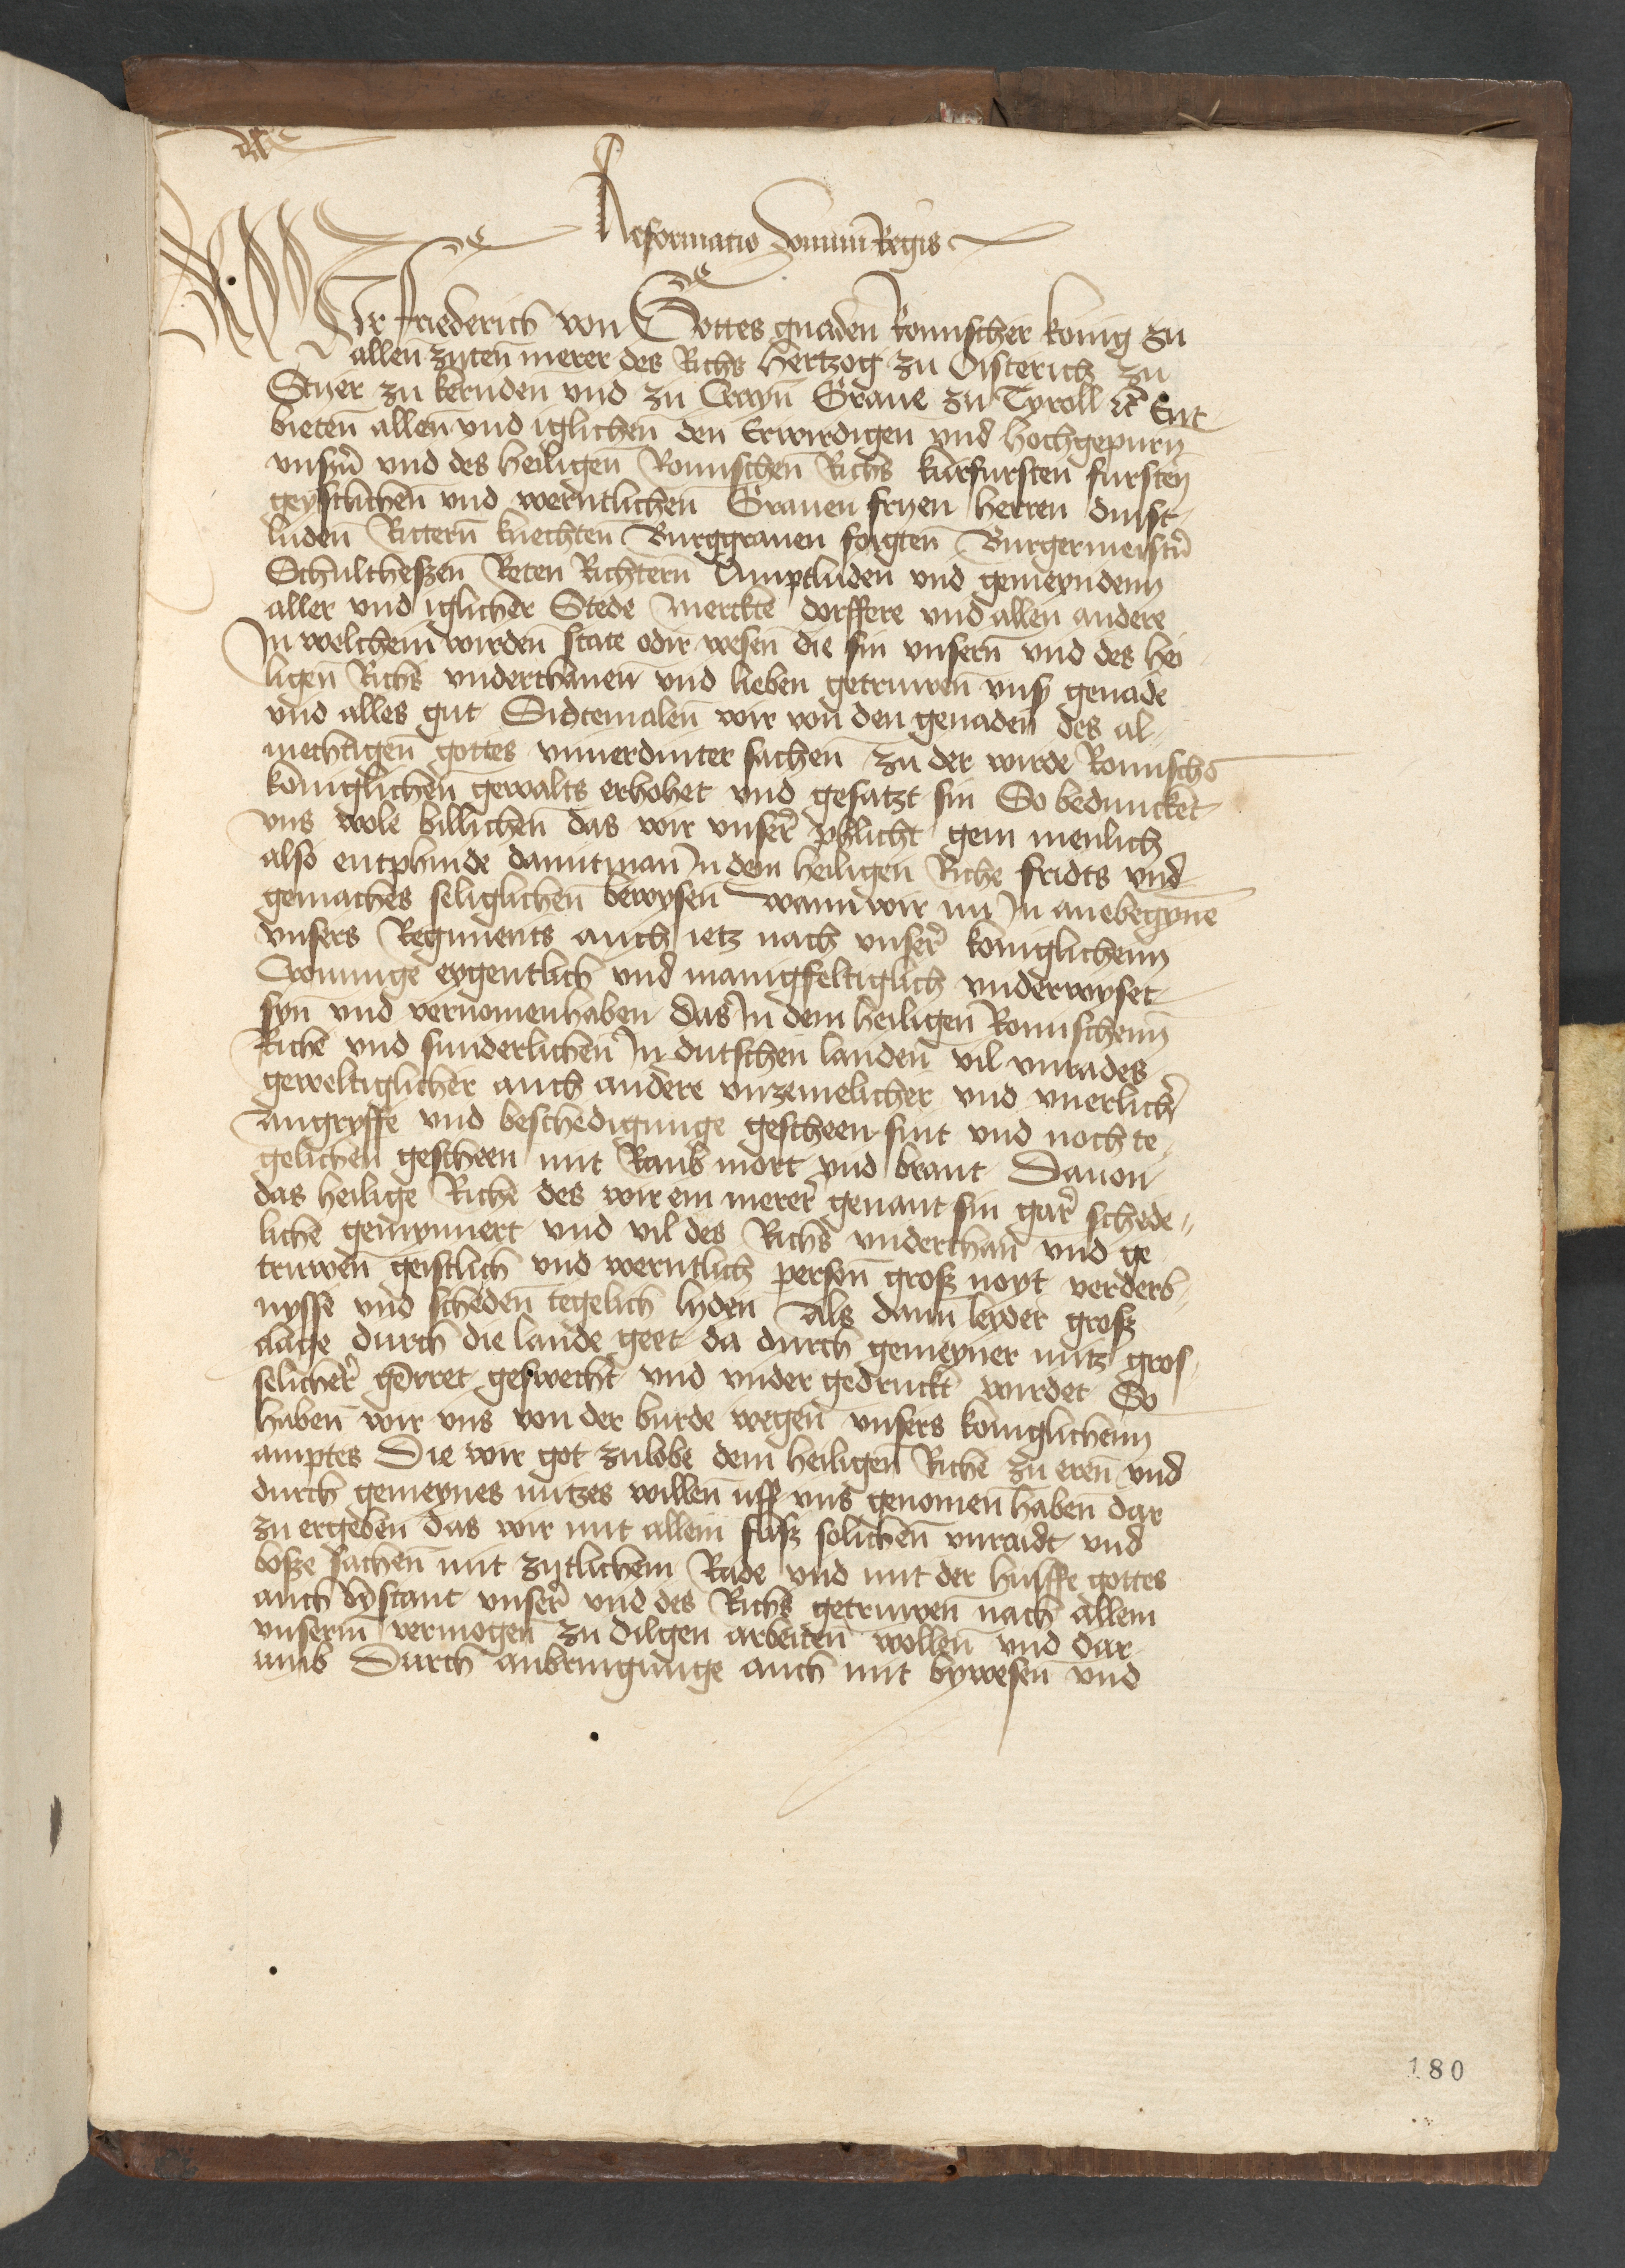 Reformatio domini Regis
Wir Friederich von Gottes gnaden Romischer konig zu
allen zyten merer des Richs Hertzog zu Osterich zu
Styer zu kernden und zu Crayn Graue zu Tyroll etc Ent-
bieten allen vnd iglichen den Erwirdigen vnd hochgepurn
vnsern vnd des heiligen Romischen Richs kurfursten fursten
geystlichen vnd werntlichen Grauen fryen herren dinst-
luden Rittern knechten Burggrauen foigten Burgermeistern
Schultheßen Reten Richtern Amptluden vnd gemeynden
aller vnd iglicher Stede merckte dorffere vnd allen andere
In welchem wirden state oder wesen die sin vnsern vnd des hei-
ligen Richs vnderthanen vnd lieben getruwen vnser genade
vnd alles gut Sidtemalen wir von den genaden des al-
mechtigen gottes vnuerdinter sachen zu der wirde Romische
koniglichen gewalts erhohet vnd gesatzt sin So beduncket
vns wole billichen das wir vnser pflicht gem menlich
also entphinde damit man In dem heiligen Riche fridts vnd
gemaches seliglichen bewysen wann wir nu In anebegynne
vnsers Regiments auch ietz nach vnser koniglichenn
Cronunge eygentlich vnd manigfeltiglich vnderwyset
syn vnd vernomen haben das In dem heiligen Romischenn
Riche vnd sunderlichen In dutschen landen vil vnrades
geweltiglicher auch andere vnzemelicher vnd vnerlicher
Angryffe vnd beschedigunge gescheen sint vnd noch te-
gelichen gescheen mit Raub mort vnd brant Dauon
das heilige Riche des wir ein merer genant sin gar schede-
liche gemynnert vnd vil des Richs vnderthan vnd ge
truwen geistlich vnd werntlich person groß noyt verderb-
nysse vnd scheden tegelich lyden Als dann leyder groß
clage durch die lande geet da durch gemeyner nutz gros-
selicher gerret geswecht vnd vnder gedruckt wurdet So
haben wir vns von der burde wegen vnsers koniglichenn
amptes Die wir got zu lobe dem heiligen Riche zu eren vnd
durch gemeynes nutzes willen uff vns genomen haben dar
zu ergeben das wir mit allem flisß solichen vnraidt vnd
boße sachen mit zytlichem Rade vnd mit der hulffe gottes
auch bystant vnser vnd des Richs getruwen nach allem
vnserm vermogen zu dilgen arbeiten wollen vnd dar-
umb Durch anbringunge auch mit bywesen vnd
180